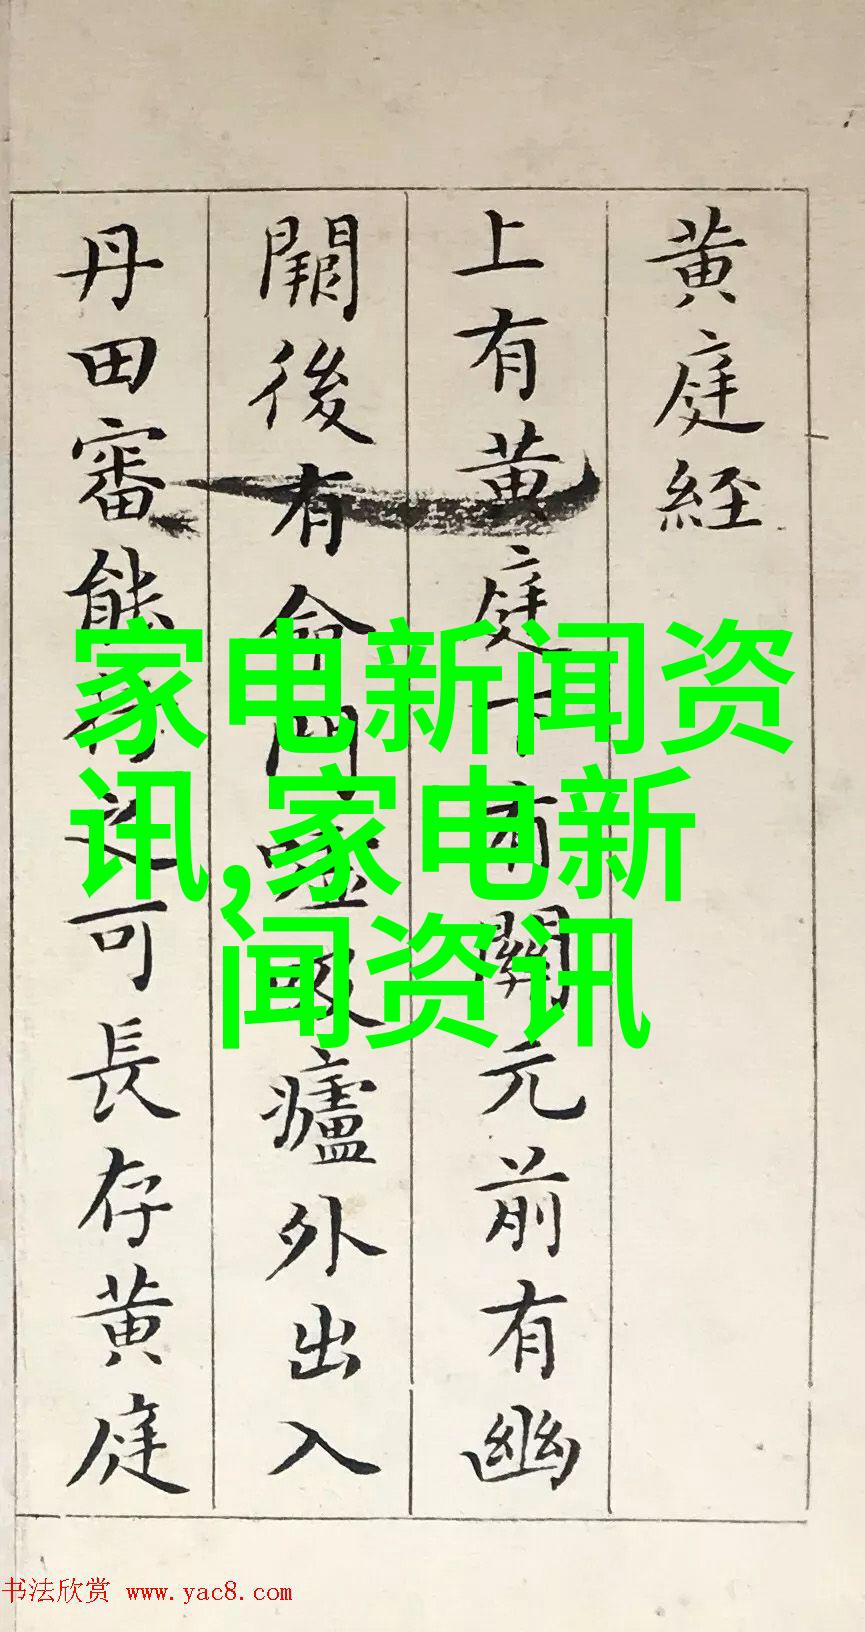 黄庭経
上有黄庭下有關元前有幽
闕後有命門噓吸廬外出入
丹田審能行之可長存黄庭
家电新闻资
讯,家电新
闻资讯
书法欣赏 www.yac8.com